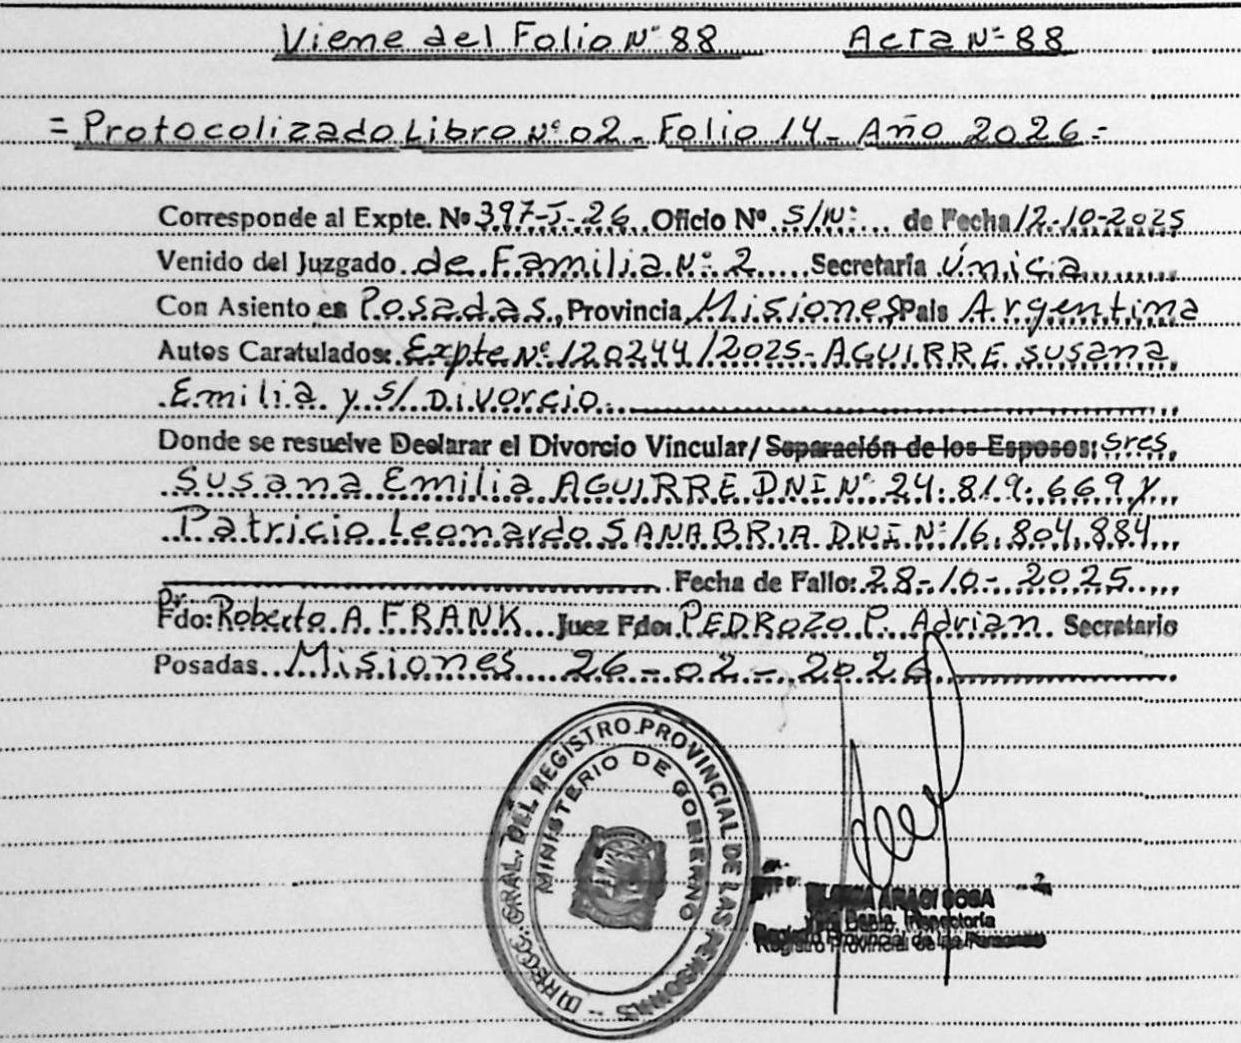 Viene del Folio Nº 88 Acta Nº 88
= Protocolizado Libro Nº 02 - Folio 14 - Año 2026 =
Corresponde al Expte. Nº 397-J-26 Oficio Nº S/Nº de Fecha 12-10-2025
Venido del Juzgado de Familia Nº 2 Secretaría Única
Con Asiento en Posadas, Provincia Misiones País Argentina
Autos Caratulados: Expte Nº 120244/2025- AGUIRRE Susana
Emilia y s/ Divorcio
Donde se resuelve Declarar el Divorcio Vincular/ Separación de los Esposos: Sres.
Susana Emilia AGUIRRE DNI Nº 24.819.669 y
Patricio Leonardo SANABRIA DNI Nº 16.804.884
Fecha de Fallo: 28-10-2025
Fdo: Dr. Roberto A. FRANK Juez Fdo: PEDROZO P. Adrian Secretario
Posadas Misiones 26-02-2026
DIRECC. GRAL. DEL REGISTRO PROVINCIAL DE LAS PERSONAS
MINISTERIO DE GOBIERNO
Dpto. Inspectoría
Registro Provincial de las Personas